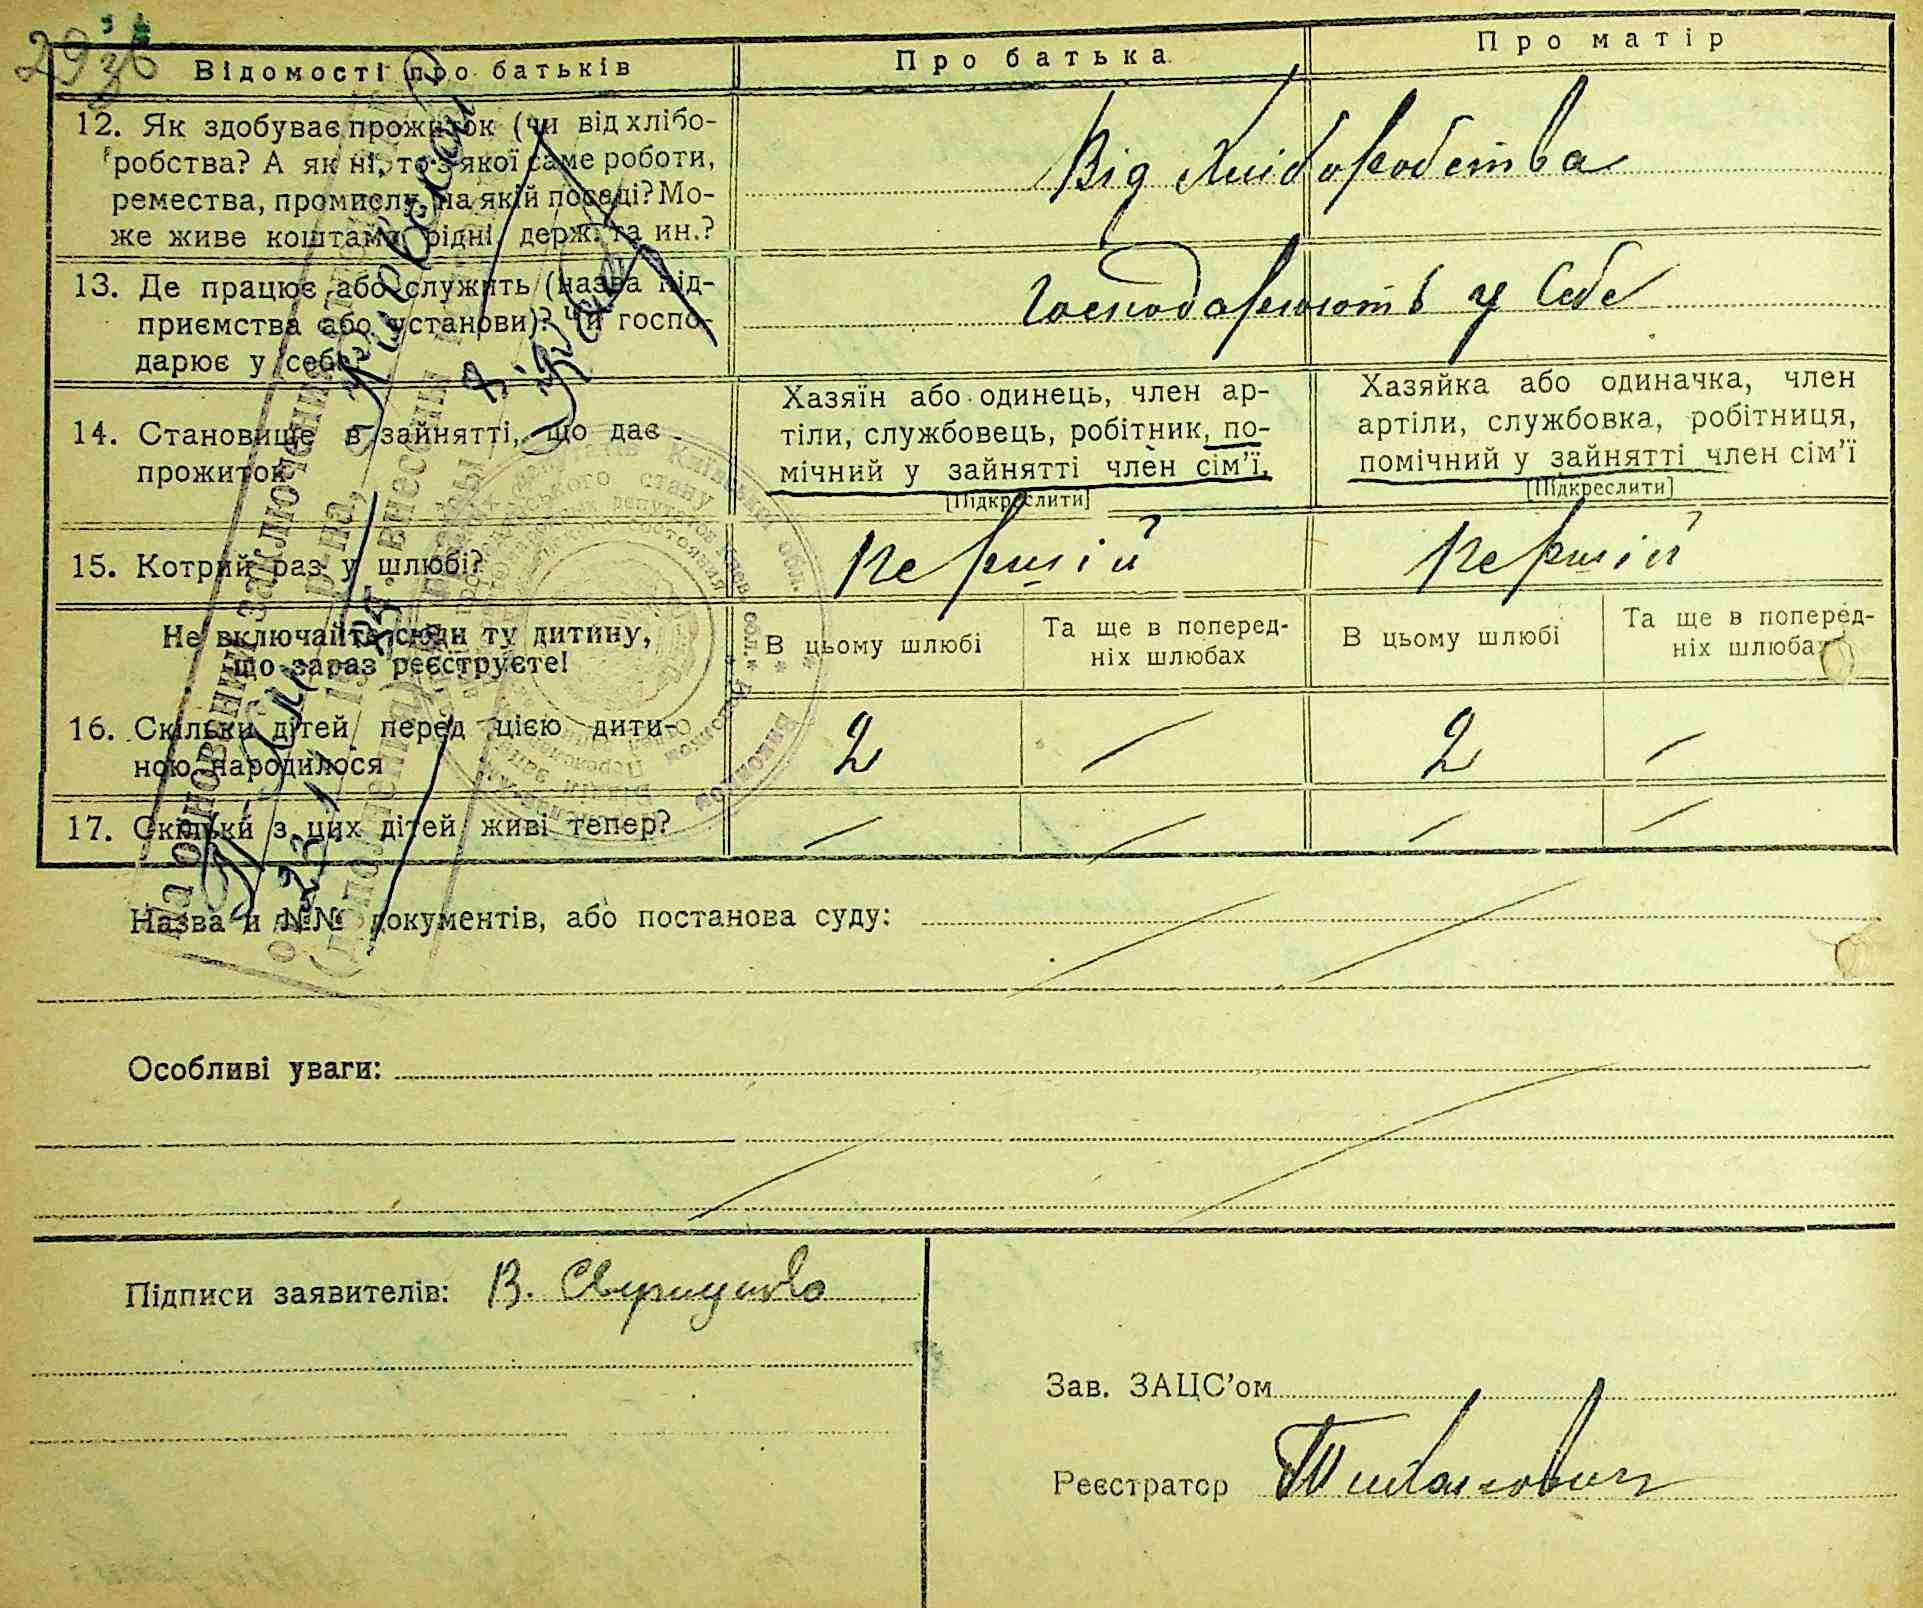 29
36
Відомості про батьків
Про батька
Про матір
12. Як здобуває прожиток (чи від хлібо-
робства? А як ні, то з якої саме роботи,
ремества, промислу, на якій посаді? Мо-
же живе коштами рідні, держ. та ин.?
Від Хліборобства
13. Де працює або служить (назва під-
приємства або установи)? Чи госпо-
дарює у себе
Господарюють у Себе
14. Становище в зайнятті, що дає
прожиток
Хазяїн або одинець, член ар-
тіли, службовець, робітник, по-
мічний у зайнятті член сім'ї.
[Підкреслити]
Хазяйка або одиначка, член
артіли, службовка, робітниця,
помічний у зайнятті член сім'ї
[Підкреслити]
15. Котрий раз у шлюбі?
Перший
Перший
Не включайте сюди ту дитину,
що зараз реєструєте!
В цьому шлюбі
Та ще в поперед-
ніх шлюбах
В цьому шлюбі
Та ще в поперед-
ніх шлюбах
16. Скільки дітей перед цією дити-
ною народилося
2 — 2 —
17. Скільки з цих дітей живі тепер?
— — — —
На основании заключения
р-на,
внесения
Назва й №№ документів, або постанова суду:
Особливі уваги:
Підписи заявителів: В.
Зав. ЗАЦС'ом
Реєстратор